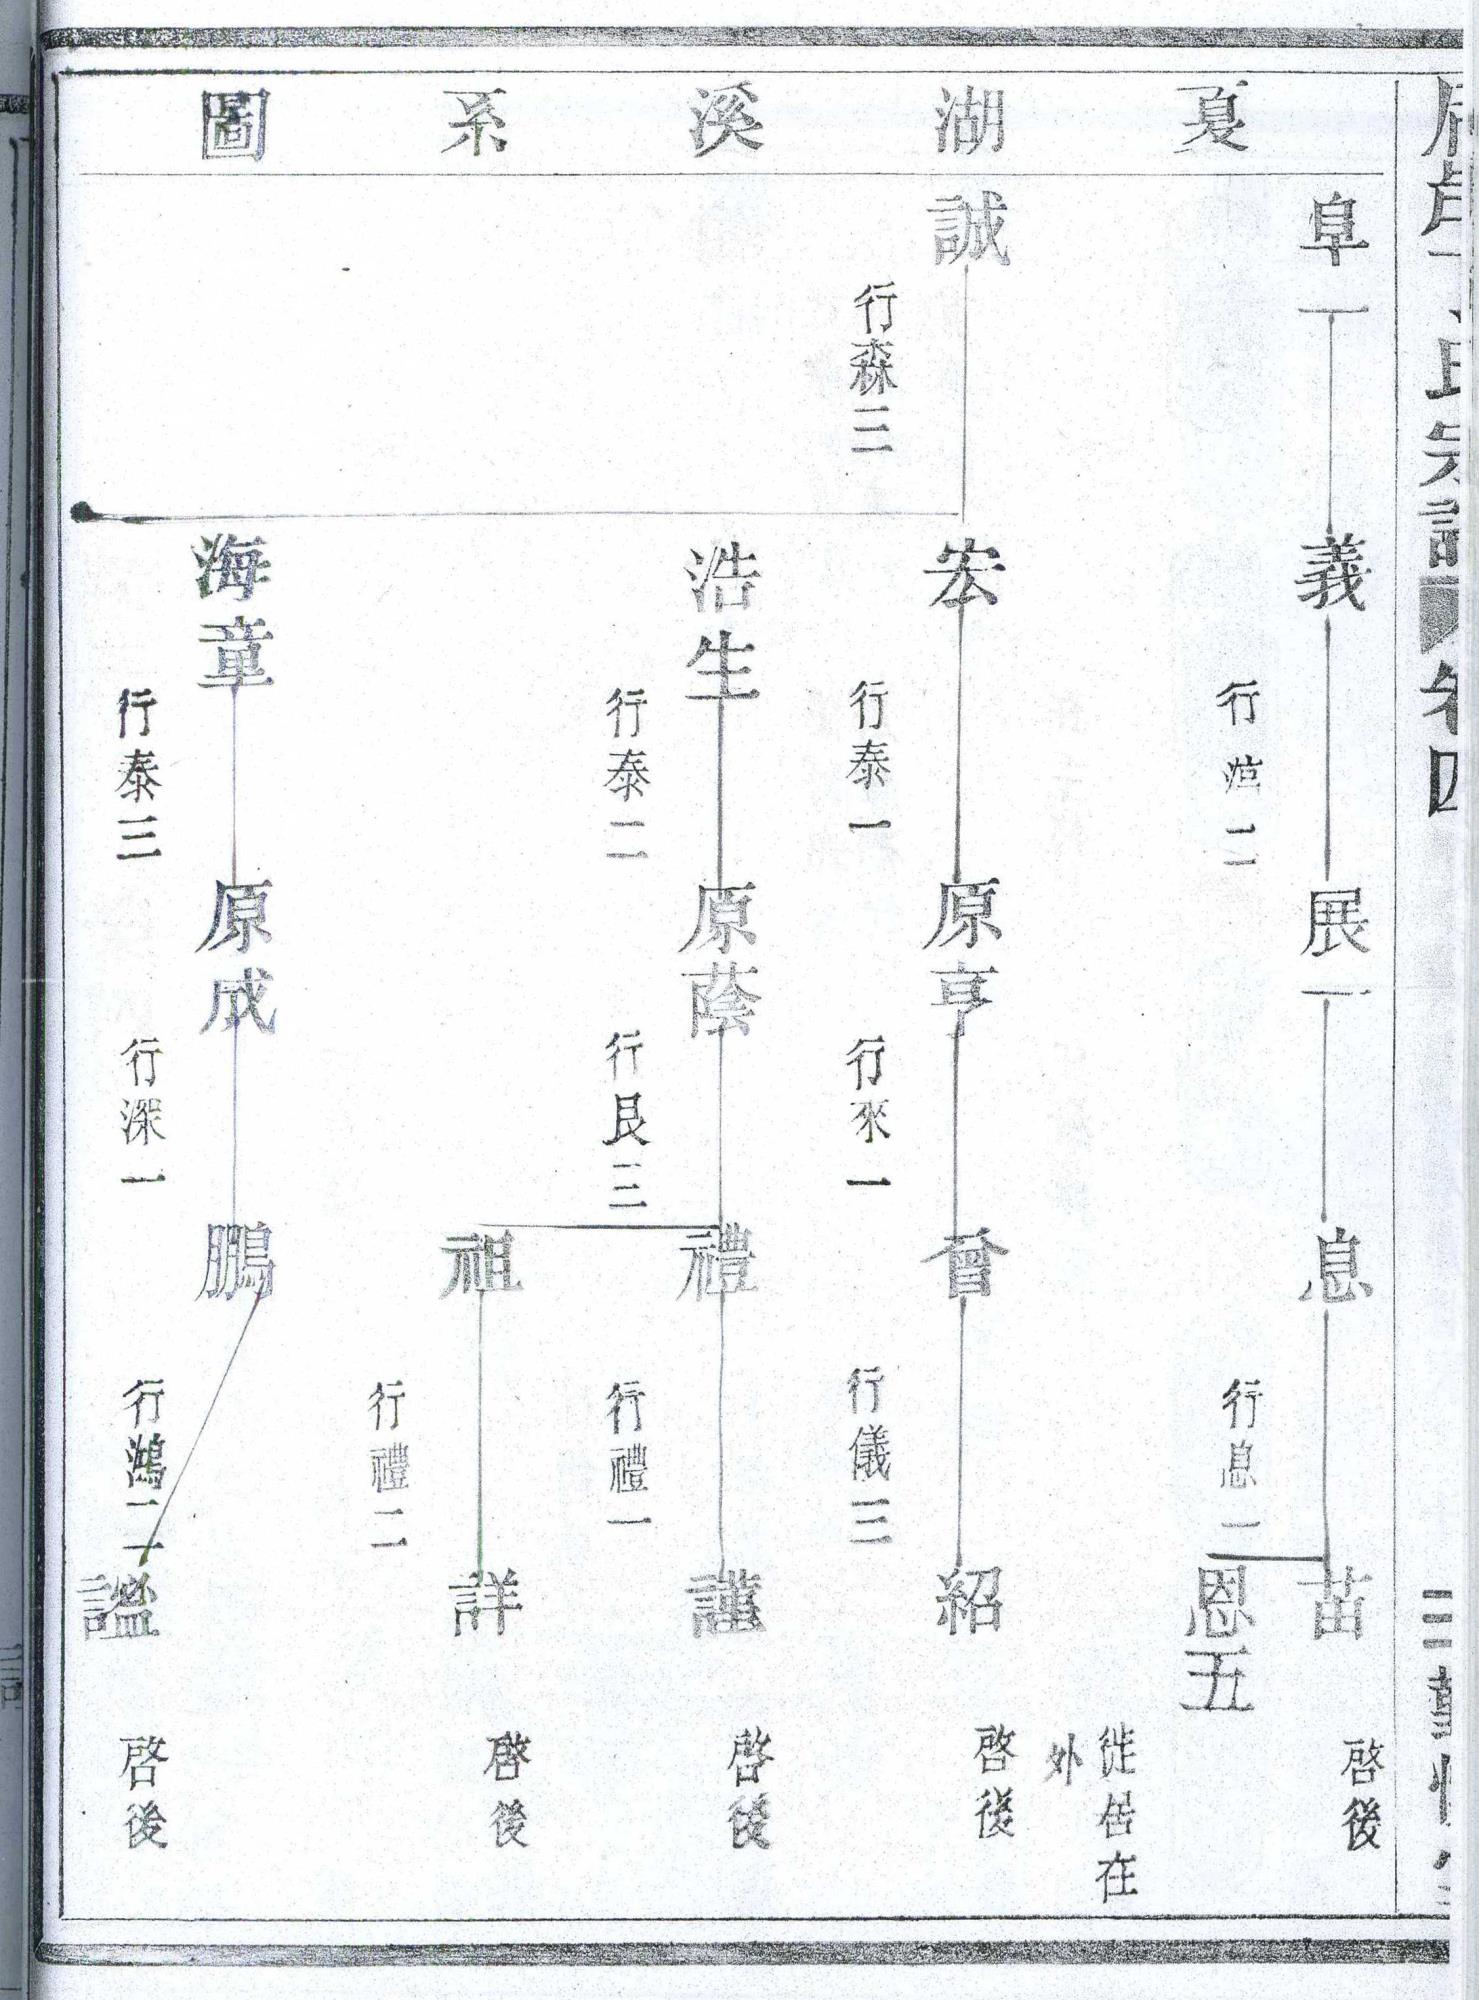 夏湖溪系圖
氏宗譜
卷四
阜一
義
行 二
展一
息
行息一
苗
啓後
恩五
徙居在
外
誠
行森三
宏
行泰一
原亨
行來一
曾
行儀三
紹
啓後
浩生
行泰二
原蔭
行艮三
禮
行禮一
謹
啓後
祖
行禮二
詳
啓後
海章
行泰三
原成
行深一
鵬
行鴻二
謚
啓後